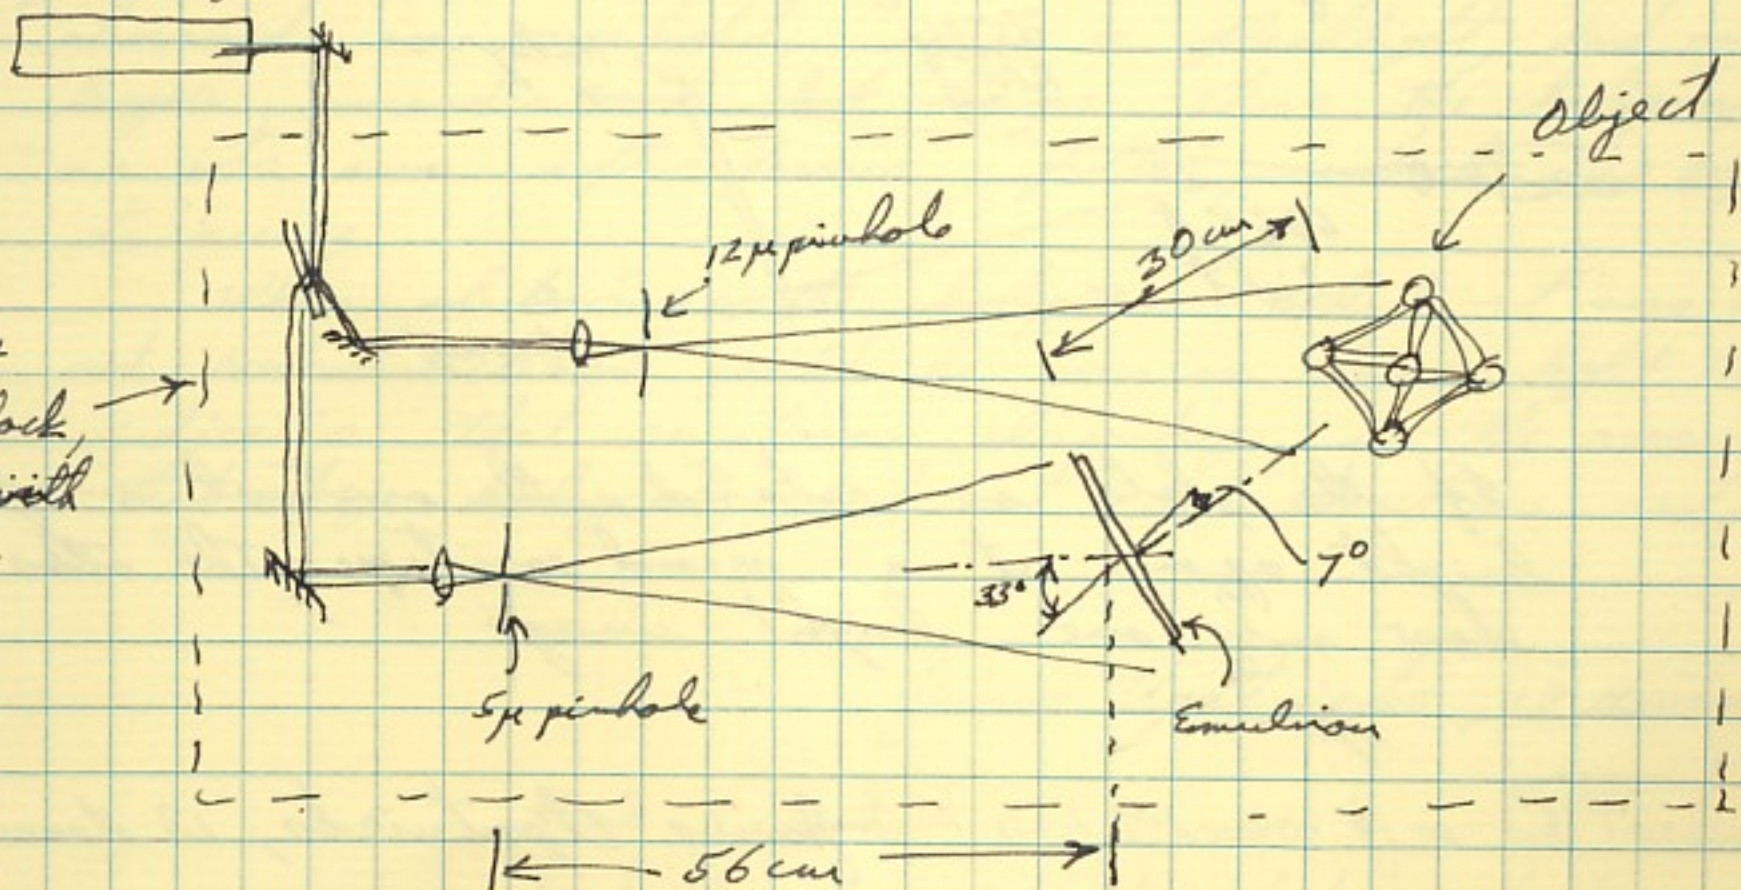 Object
12μ pinhole
30 cm
lock,
with
7°
33°
5μ pinhole
Emulsion
56 cm